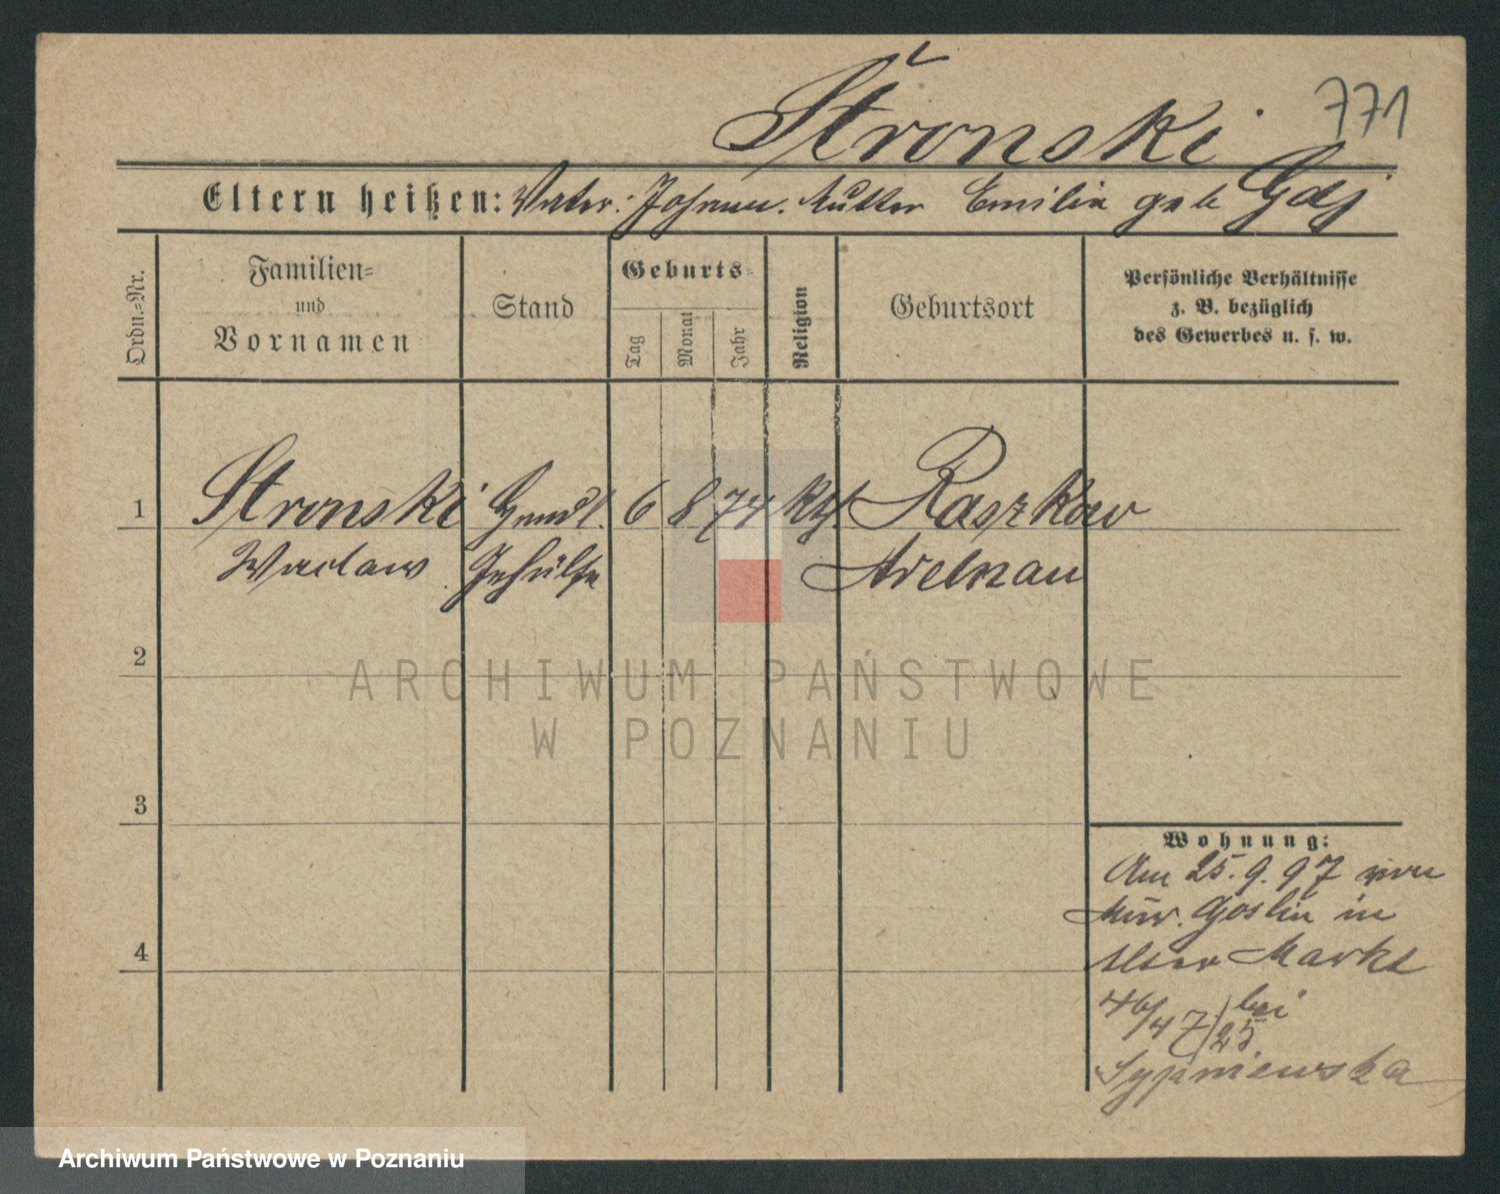 Stronski
771
Eltern heißen: Vater: Johann. Mutter Emilie geb
Ordn.-Nr.
Familien-
und
Vornamen
Stand
Geburts-
Tag
Monat
Jahr
Religion
Geburtsort
Persönliche Verhältnisse
z. B. bezüglich
des Gewerbes u. s. w.
1
Stronski Handl. 6 8 74 kth. Raszkow
Waclaw Gehülfe Adelnau
2
ARCHIWUM PAŃSTWOWE
W POZNANIU
3
Wohnung:
Am 25. 9. 97 von
Mur. Goslin in
Alter Markt
46/47 bei
25
Sypniewska
4
Archiwum Państwowe w Poznaniu